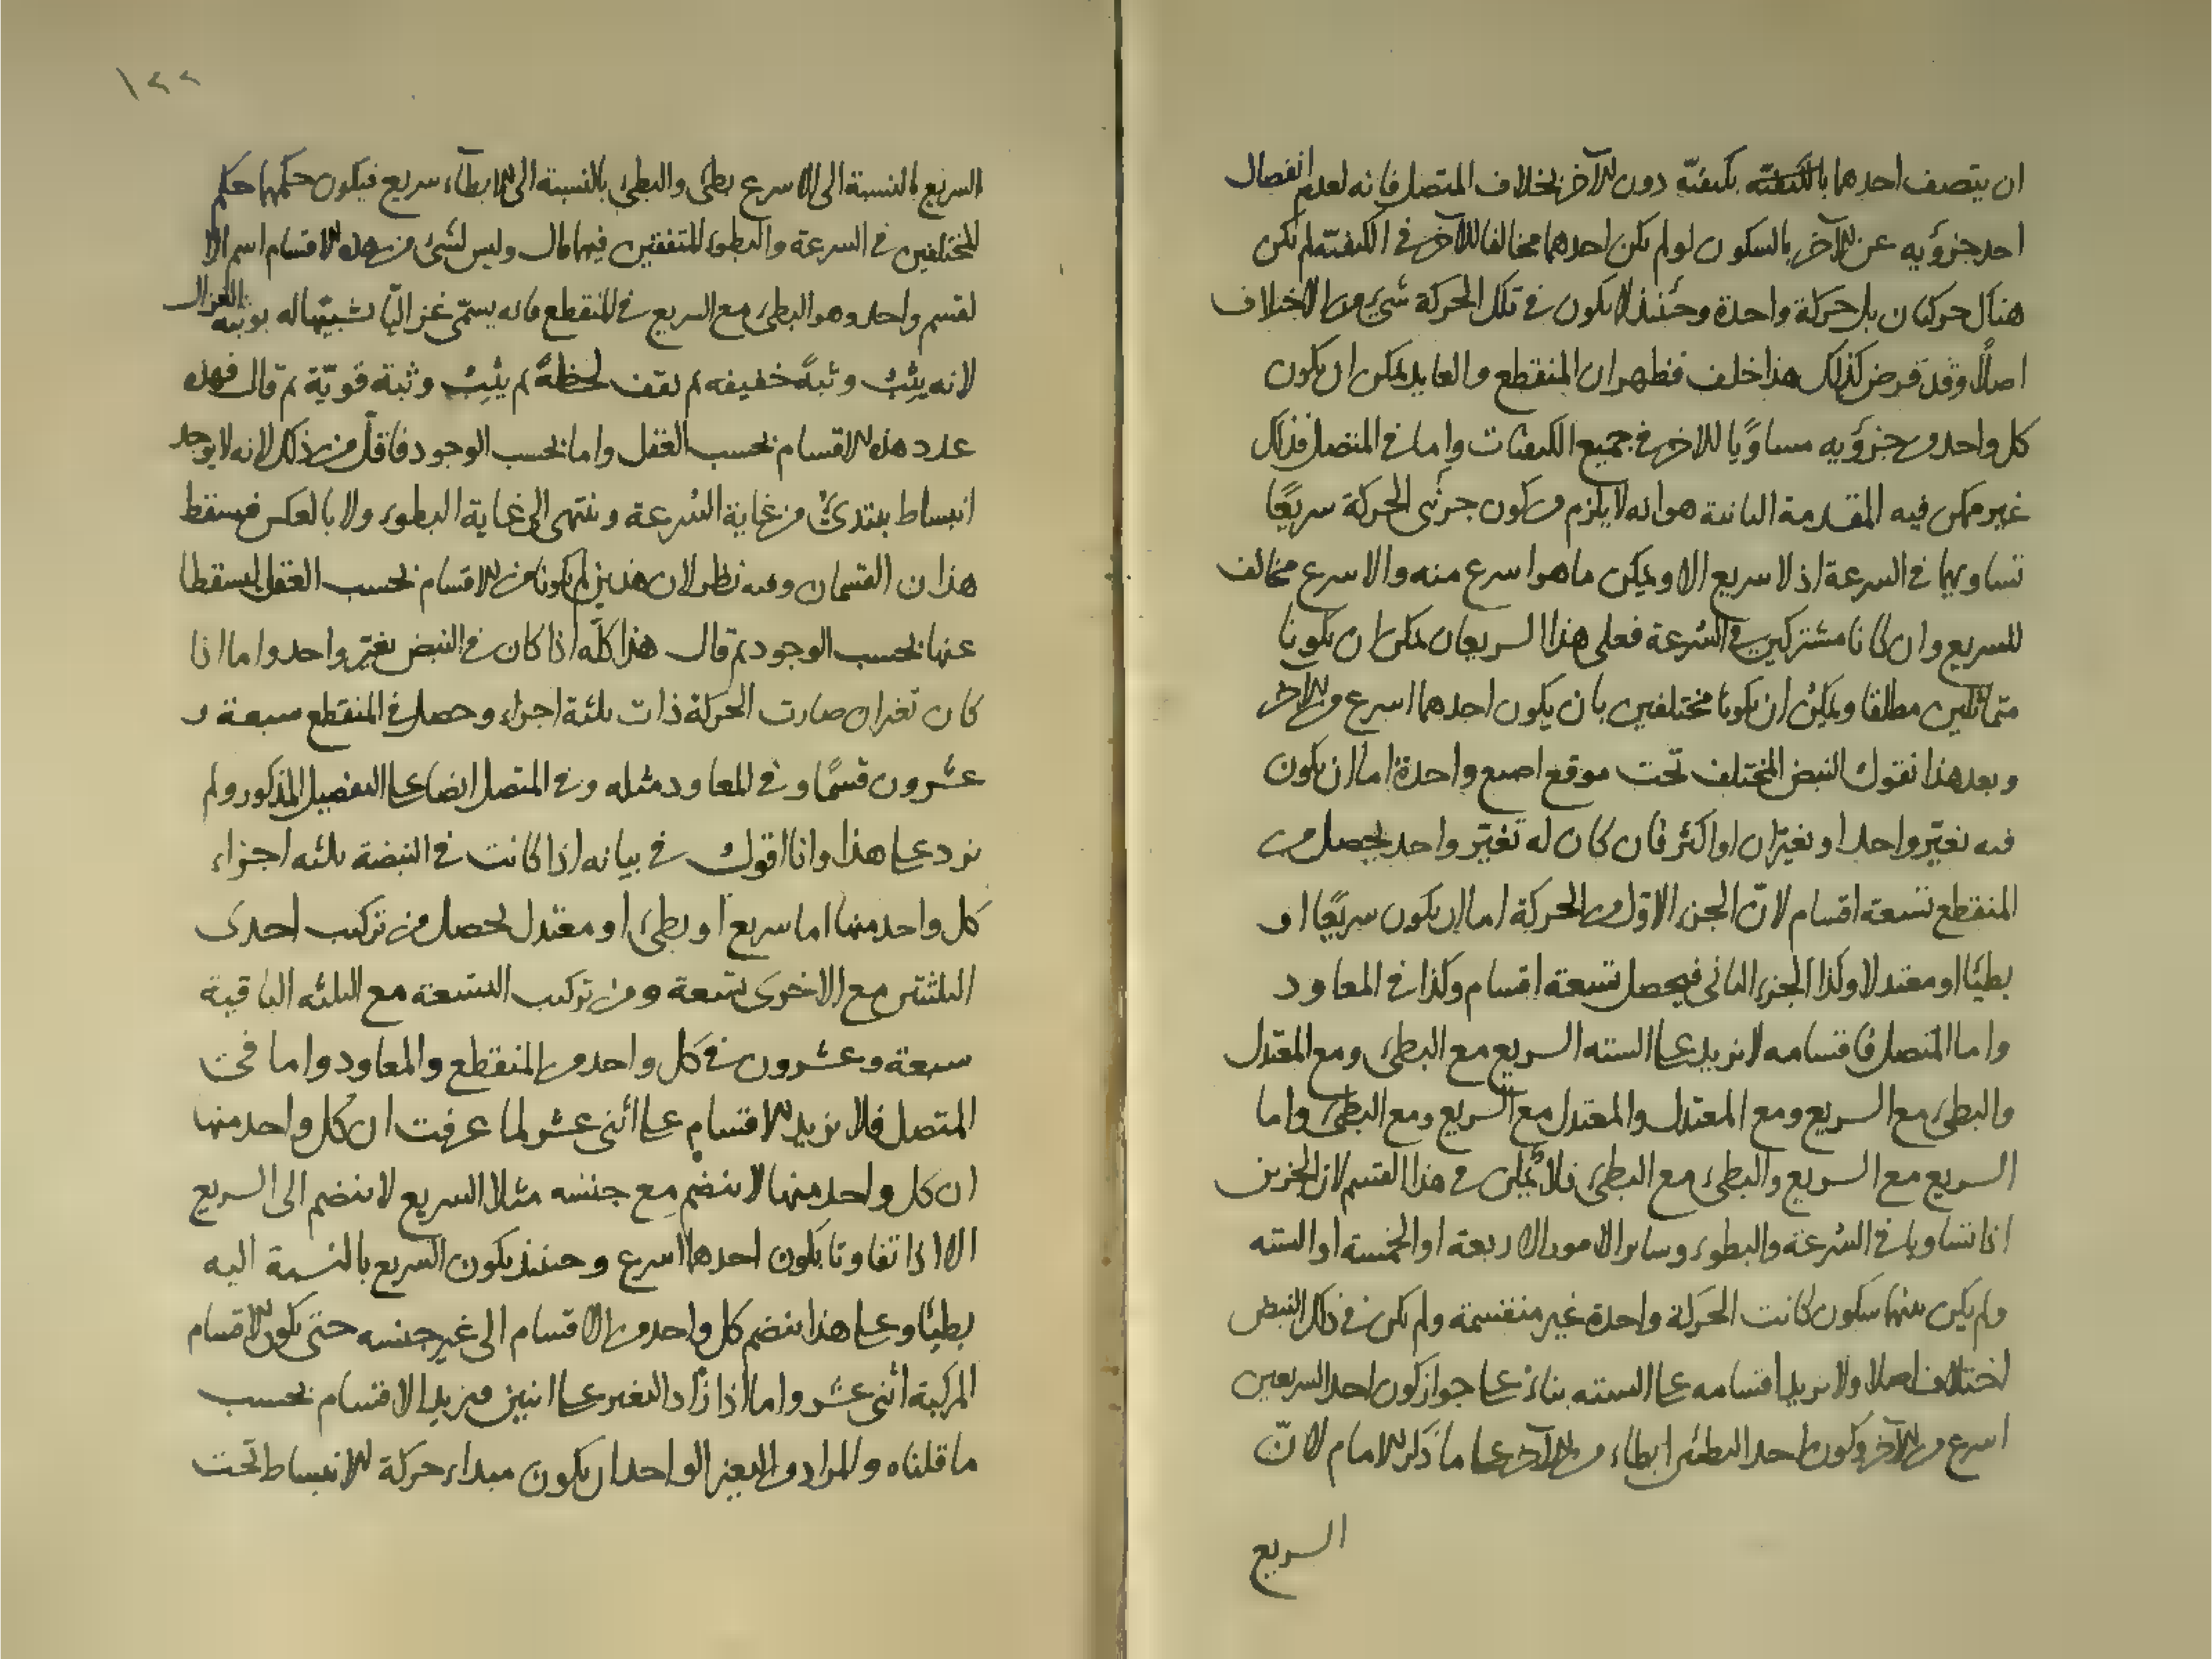 ان يتصف احدهما بالكيفية بكيفية دون الآخر بخلاف المتصل فانه لعدم انفصال
احد جزؤيه عن الآخر بالسكون لو لم يكن احدهما مخالفا للآخر في الكيفية لم يكن
هناك حركتان بل حركة واحدة وحينئذ لا يكون في تلك الحركة شئ من الاختلاف
اصلا وقد فرض كذلك هذا خلف فظهر ان المنقطع والعايد يمكن ان يكون
كل واحد من جزؤيه مساويا للاخر في جميع الكيفيات واما في المتصل فذلك
غير ممكن فيه المقدمة الثانية هو انه لا يلزم من كون جزئى الحركة سريعًا
تساويهما في السرعة اذ لا سريع الا ويمكن ما هو اسرع منه والاسرع مخالف
للسريع وان كانا مشتركين في السرعة فعلى هذا السريعان يمكن ان يكونا
متماثلين مطلقا ويمكن ان يكونا مختلفين بان يكون احدهما اسرع من الآخر
وبعد هذا نقول النبض المختلف تحت موقع اصبع واحدة اما ان يكون
فيه تغيّر واحد او تغيّران او اكثر فان كان له تغيّر واحد يحصل من
المنقطع تسعة اقسام لانّ الجزء الاوّل من الحركة اما ان يكون سريعًا او
بطيئا او معتدلا وكذا الجزء الثانى فيحصل تسعة اقسام وكذا في المعاود
واما المتصل فاقسامه لا تزيد على الستة السريع مع البطئ ومع المعتدل
والبطئ مع السريع ومع المعتدل والمعتدل مع السريع ومع البطئ واما
السريع مع السريع والبطئ مع البطئ فلا يمكن في هذا القسم لان الجزئين
اذا تساويا في السرعة والبطوء وساير الامور الاربعة او الخمسة او الستة
ولم يكن بينهما سكون كانت الحركة واحدة غير منقسمة ولم يكن في ذلك النبض
اختلاف اصلا ولا تزيد اقسامه على الستة بناءً على جواز كون احد السريعين
اسرع من الآخر وكون احد البطئين ابطاء من الآخر على ما ذكر الامام لانّ
السريع
١٢٢
السريع بالنسبة الى الاسرع بطئ والبطئ بالنسبة الى الابطاء سريع فيكون حكمهما حكم
المختلفين في السرعة والبطوء المتفقين فيهما قال وليس لشئ من هذه الاقسام اسم الا
لقسم واحد وهو البطئ مع السريع في المنقطع فانه يسمّى غزاليّا تشبيهًا له بوثبة الغزال
لانه يثب وثبةً خفيفه ثم يقف لحظةً ثم يثب وثبة قويّة ثم قال فهذه
عدد هذه الاقسام بحسب العقل واما بحسب الوجود فاقلّ من ذلك لانه لا يوجد
انبساط يبتدئ من غاية السّرعة وينتهى الى غاية البطوء ولا بالعكس فيسقط
هذان القسمان وفيه نظر لان هذين لم يكونا من الاقسام بحسب العقل ليسقطا
عنها بحسب الوجود ثم قال هذا كلّه اذا كان في النبض تغيّر واحد واما اذا
كان تغيران صارت الحركة ذات ثلثة اجزاء وحصل في المنقطع سبعة و
عشرون قسمًا وفي المعاود مثله وفي المتصل ايضا على التفصيل المذكور ولم
نزد على هذا وانا اقول في بيانه اذا كانت في النبضة ثلثه اجزاء
كل واحد منها اما سريع او بطئ او معتدل يحصل من تركيب احدى
الثلثتين مع الاخرى تسعة ومن تركيب التسعة مع الثلثه الباقية
سبعة وعشرون في كل واحد من المنقطع والمعاود واما في
المتصل فلا تزيد الاقسام على اثنى عشر لما عرفت ان كل واحد منها
ان كل واحد منها لا ينضم مع جنسه مثلا السريع لا ينضم الى السريع
الا اذا تفاوتا بكون احدهما اسرع وحينئذ يكون السريع بالنسبة اليه
بطيئا وعلى هذا ينضم كل واحد من الاقسام الى غير جنسه حتى يكون الاقسام
المركبة اثنى عشر واما اذا زاد التغير على اثنين فيزيد الاقسام بحسب
ما قلناه والمراد من التغير الواحد ان يكون مبداء حركة الانبساط تحت